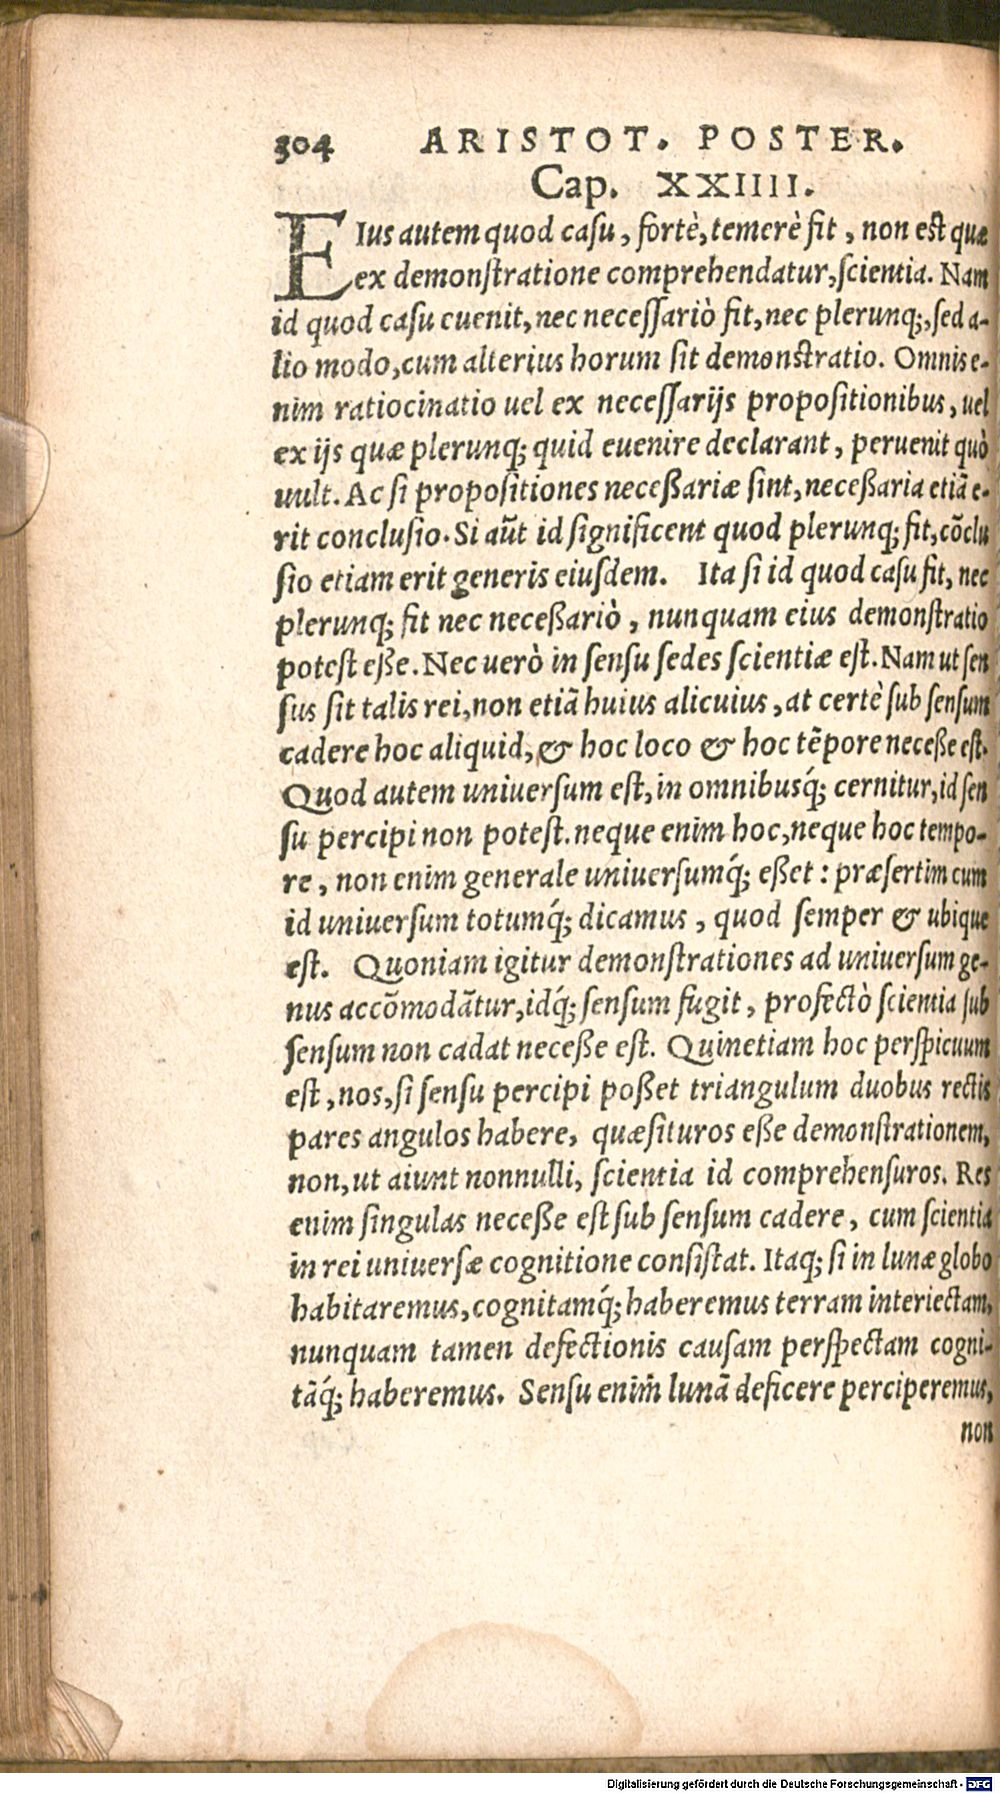 304 ARISTOT. POSTER.
Cap. XXIIII.
EIus autem quod casu, fortè, temerè fit, non est quæ
ex demonstratione comprehendatur, scientia. Nam
id quod casu euenit, nec necessariò fit, nec plerunq;, sed a-
lio modo, cum alterius horum sit demonstratio. Omnis e-
nim ratiocinatio uel ex necessarijs propositionibus, uel
ex ijs quæ plerunq; quid euenire declarant, peruenit quò
uult. Ac si propositiones neceßariæ sint, neceßaria etiã e-
rit conclusio. Si aũt id significent quod plerunq; fit, cõclu
sio etiam erit generis eiusdem. Ita si id quod casu fit, nec
plerunq; fit nec neceßariò, nunquam eius demonstratio
potest eße. Nec uerò in sensu sedes scientiæ est. Nam ut sen
sus sit talis rei, non etiã huius alicuius, at certè sub sensum
cadere hoc aliquid, & hoc loco & hoc tẽpore neceße est.
Quod autem uniuersum est, in omnibusq́; cernitur, id sen
su percipi non potest. neque enim hoc, neque hoc tempo-
re, non enim generale uniuersumq́; eßet: præsertim cum
id uniuersum totumq́; dicamus, quod semper & ubique
est. Quoniam igitur demonstrationes ad uniuersum ge-
nus accõmodãtur, idq́; sensum fugit, profectò scientia sub
sensum non cadat neceße est. Quinetiam hoc perspicuum
est, nos, si sensu percipi poßet triangulum duobus rectis
pares angulos habere, quæsituros eße demonstrationem,
non, ut aiunt nonnulli, scientia id comprehensuros. Res
enim singulas neceße est sub sensum cadere, cum scientia
in rei uniuersæ cognitione consistat. Itaq; si in lunæ globo
habitaremus, cognitamq́; haberemus terram interiectam,
nunquam tamen defectionis causam perspectam cogni-
tãq́; haberemus. Sensu enim̃ lunã deficere perciperemus,
non
Digitalisierung gefördert durch die Deutsche Forschungsgemeinschaft - DFG